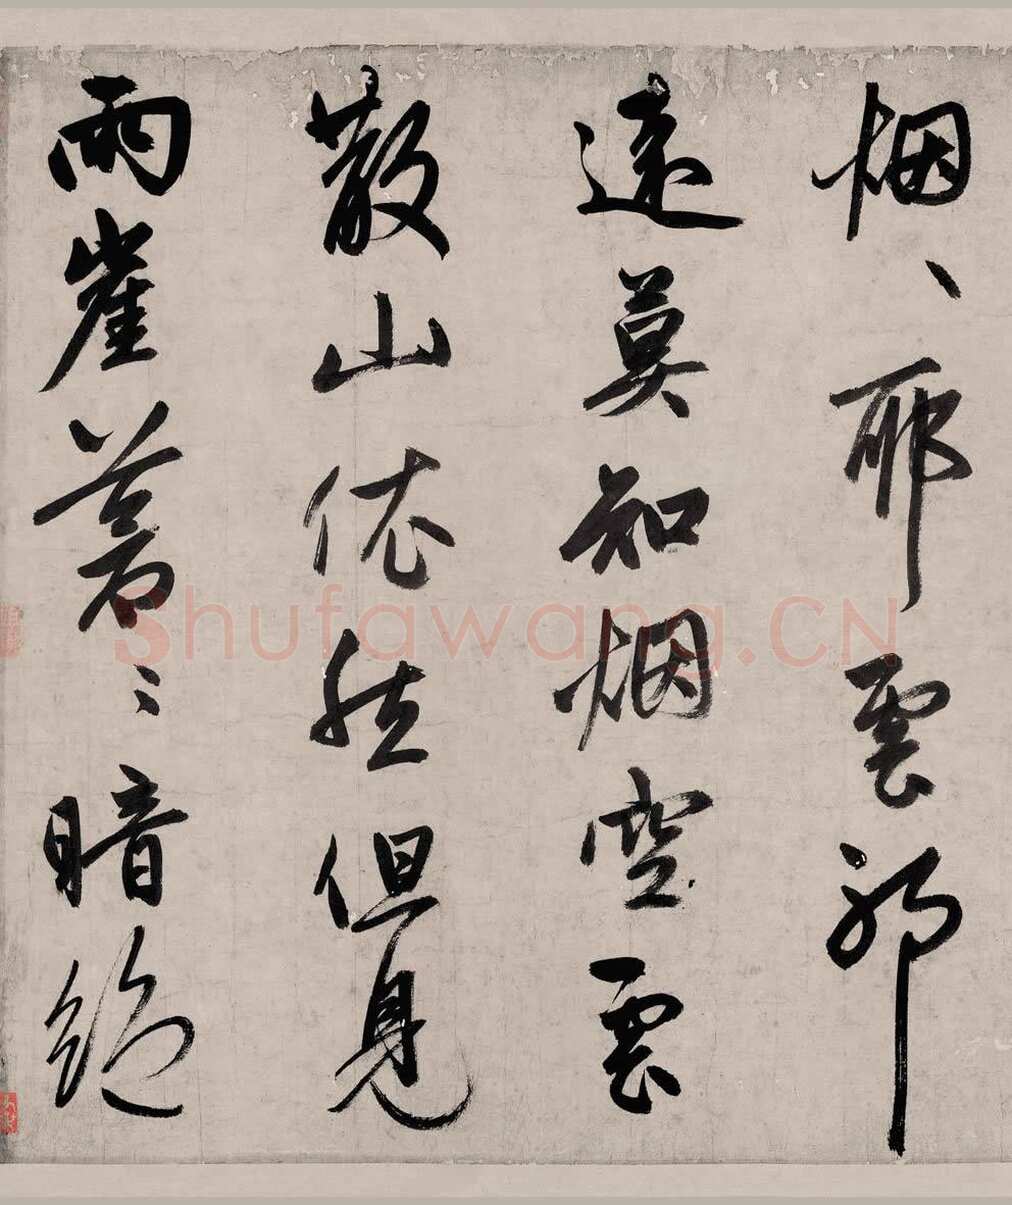 烟、耶雲耶
遠莫知烟空雲
散山依然但見
兩崖蒼〻暗絕
Shufawang.CN